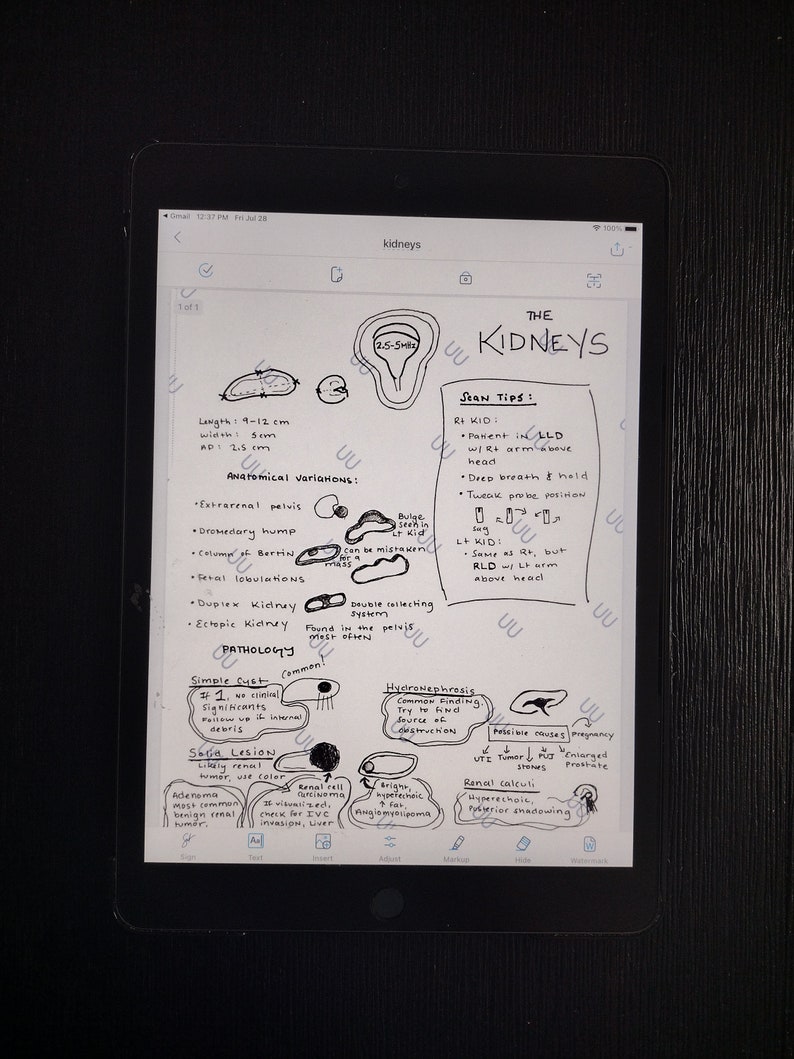 Gmail 12:37 PM Fri Jul 28
100%
kidneys
1 of 1
THE
KIDNEYS
2.5-5MHz
Length: 9-12 cm
width: 5cm
AP: 2.5 cm
Scan Tips:
Rt KID:
• Patient in LLD
w/ Rt arm above
head
• Deep breath & hold
• Tweak probe position
sag
Lt KID:
• Same as Rt, but
RLD w/ Lt arm
above head
Anatomical Variations:
• Extrarenal pelvis
• Dromedary hump
Bulge
seen in
Lt Kid
• Column of Bertin
can be mistaken
for a
mass
• Fetal lobulations
• Duplex Kidney
Double collecting
system
• Ectopic Kidney
Found in the pelvis
most often
PATHOLOGY
Simple Cyst
Common!
If 1, no clinical
significants
Follow up if internal
debris
Hydronephrosis
Common finding.
Try to find
source of
obstruction
Possible causes
Pregnancy
UTI
Tumor
stones
PUJ
Enlarged
Prostate
Solid Lesion
Likely renal
tumor, use color
Adenoma
most common
benign renal
tumor.
Renal cell
carcinoma
If visualized,
check for IVC
invasion, Liver
Bright,
hyperechoic
↑ Fat,
Angiomyolipoma
Renal calculi
Hyperechoic,
Posterior shadowing
UU
Sign
Text
Insert
Adjust
Markup
Hide
Watermark